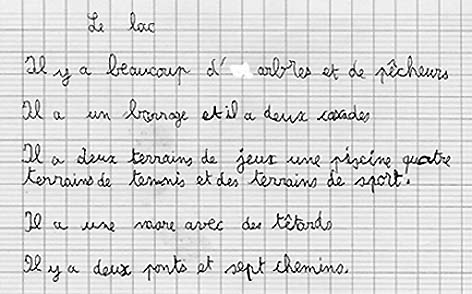 Le lac
Il y a beaucoup d' arbres et de pêcheurs
Il a un barrage et il a deux cascades
Il a deux terrains de jeux une piscine quatre
terrains de tennis et des terrains de sport.
Il a une mare avec des têtards
Il y a deux ponts et sept chemins.